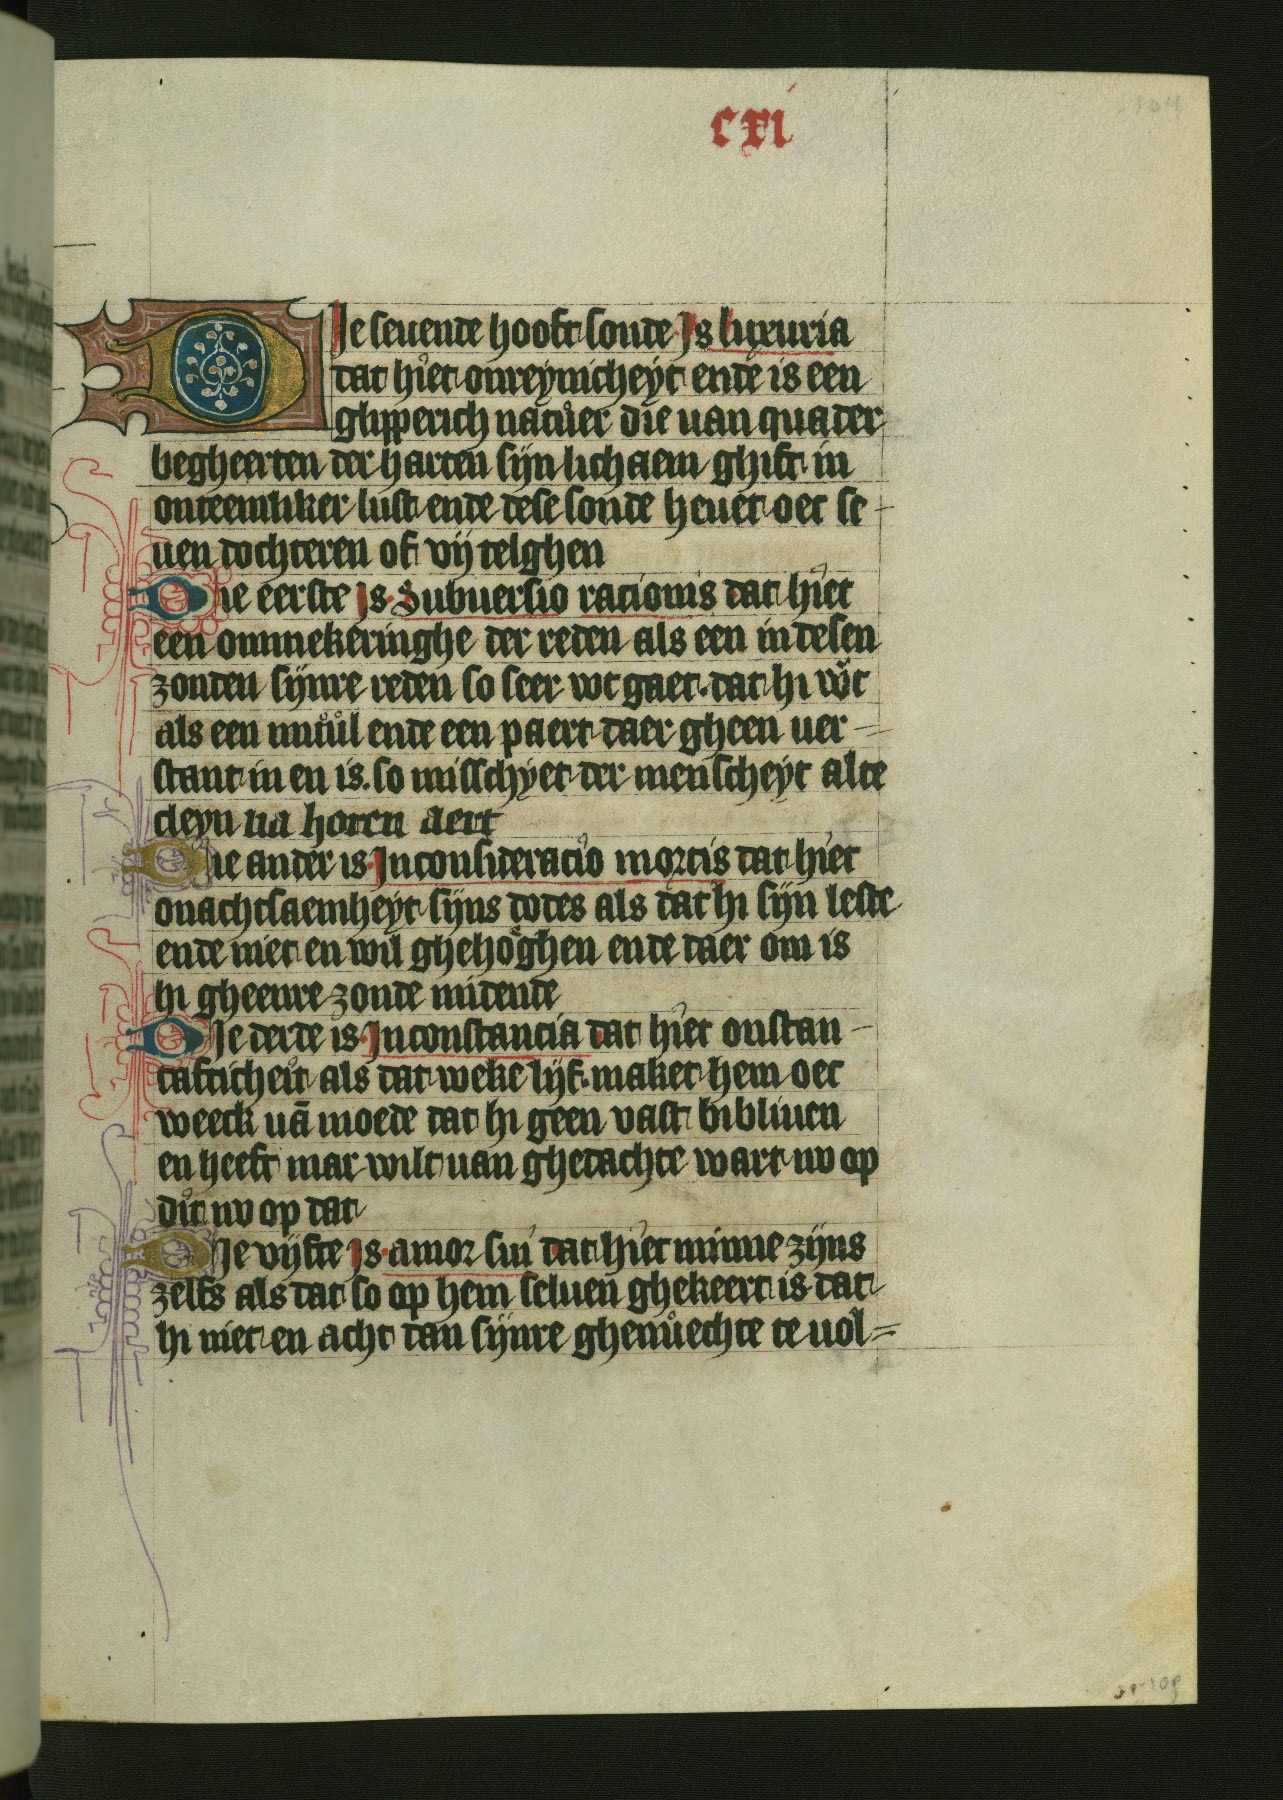 cxi
DJe seuende hooft sonde Js luxuria
dat hiet onreynicheyt ende is een
glipperich natuer die uan quader
begheerten der harten sijn lichaem ghift in
onteemliker lust ende dese sonde heuet oec se-
uen dochteren of vij telghen
Die eerste js Subuersio racionis dat hiet
een ommekeringhe der reden als een in desen
zonden sijnre reden so seer wt gaet dat hi wort
als een muul ende een paert daer gheen uer-
stant in en is. so misschyet der menscheyt alte
cleyn na horen aert
Die ander is Jnconsideracio mortis dat hiet
onachtsaemheyt sijns dodes als dat hi sijn leste
ende niet en wil ghehoghen ende daer om is
hi gheenre zonde midende
DJe derde is Jnconstancia dat hiet onstan-
tafticheit als dat weke lijf maket hem oec
weeck uā moede dat hi geen vast bibliuen
en heeft mar wilt uan ghedachte wart nv op
dit nv op dat
DJe vijfte js amor sui dat hiet minne zijns
zelfs als dat so op hem seluen ghekeert is dat
hi niet en acht dan sijnre ghenuechte te uol=